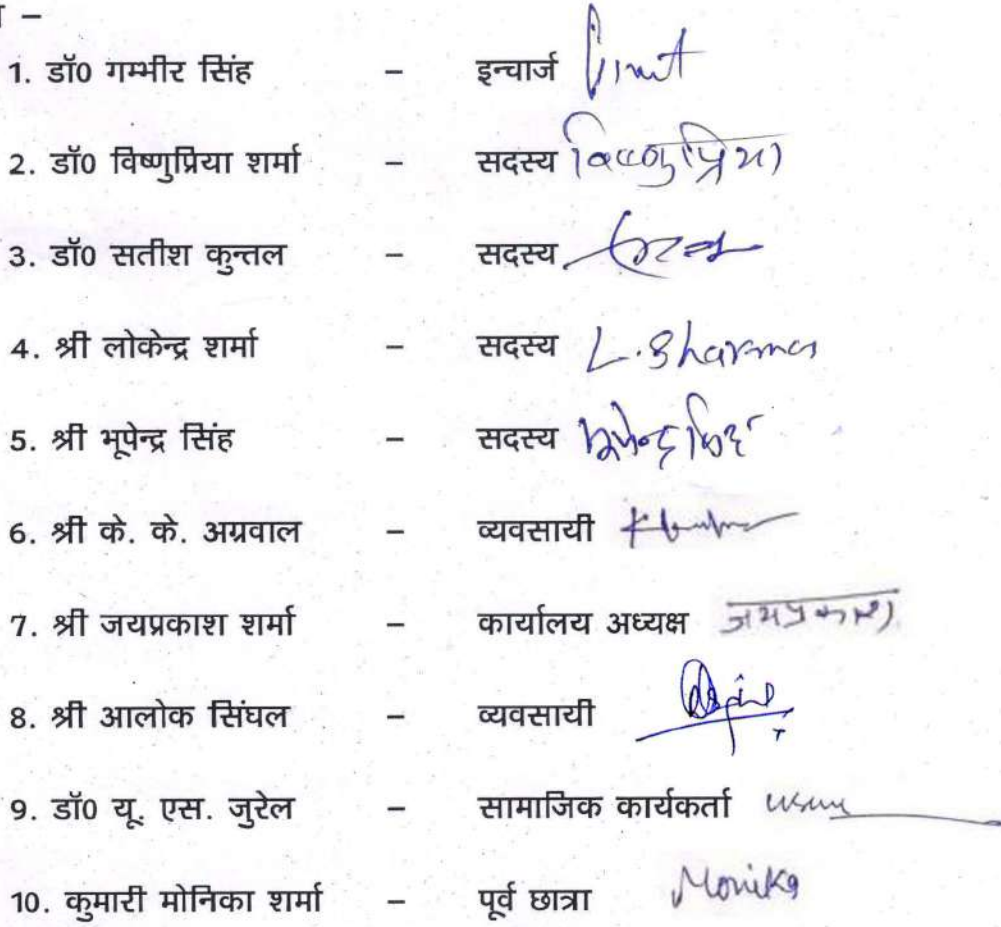 –
1. डॉ0 गम्भीर सिंह – इन्चार्ज
2. डॉ0 विष्णुप्रिया शर्मा – सदस्य विष्णुप्रिया
3. डॉ0 सतीश कुन्तल – सदस्य
4. श्री लोकेन्द्र शर्मा – सदस्य L. Sharma
5. श्री भूपेन्द्र सिंह – सदस्य भूपेन्द्र सिंह
6. श्री के. के. अग्रवाल – व्यवसायी
7. श्री जयप्रकाश शर्मा – कार्यालय अध्यक्ष जयप्रकाश
8. श्री आलोक सिंघल – व्यवसायी
9. डॉ0 यू. एस. जुरेल – सामाजिक कार्यकर्ता
10. कुमारी मोनिका शर्मा – पूर्व छात्रा Monika